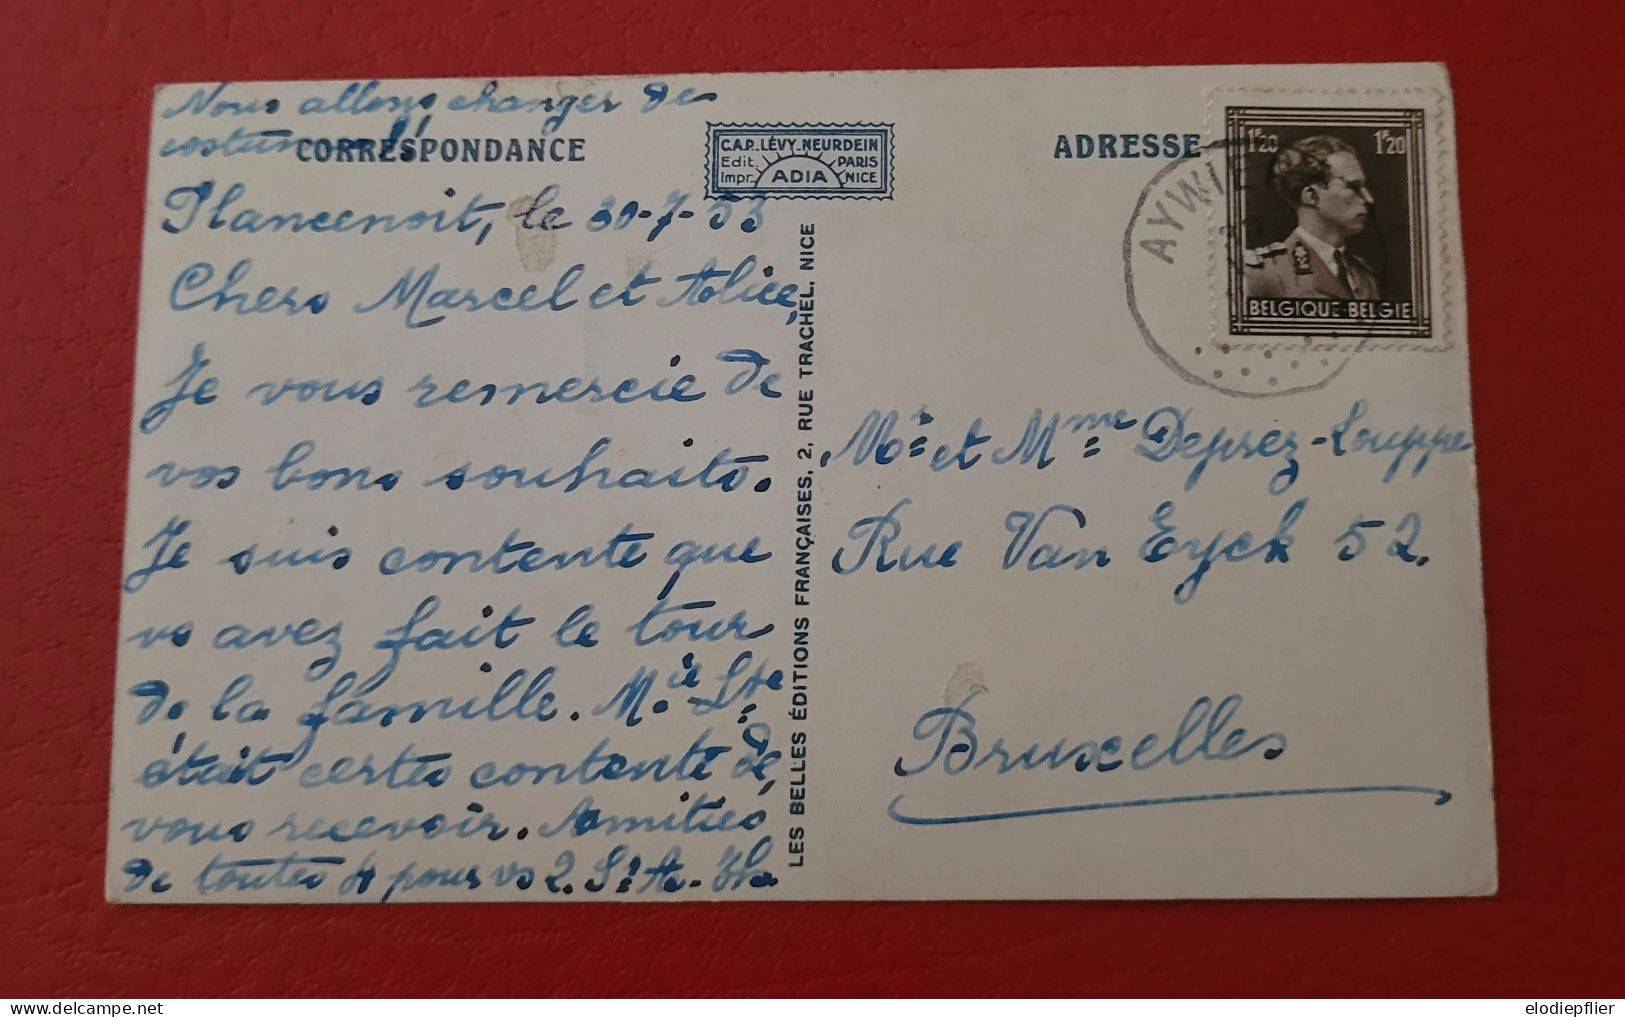 Nous allons changer de
costume
CORRESPONDANCE
Plancenoit, le 30-7-53
Chers Marcel et Alice,
Je vous remercie de
vos bons souhaits.
Je suis contente que
vs avez fait le tour
de la famille. Mie Ste
était certes contente de
vous recevoir. Amitiés
de toutes pour vs 2. Sr A.
C.A.P. LÉVY-NEURDEIN
Edit. PARIS
Impr. ADIA NICE
LES BELLES ÉDITIONS FRANÇAISES, 2, RUE TRACHEL, NICE
ADRESSE
AYWIE
1F20 1F20
BELGIQUE-BELGIE
Mr et Mme Deprez-Louppe
Rue Van Eyck 52.
Bruxelles
delcampe.net
elodiepflier